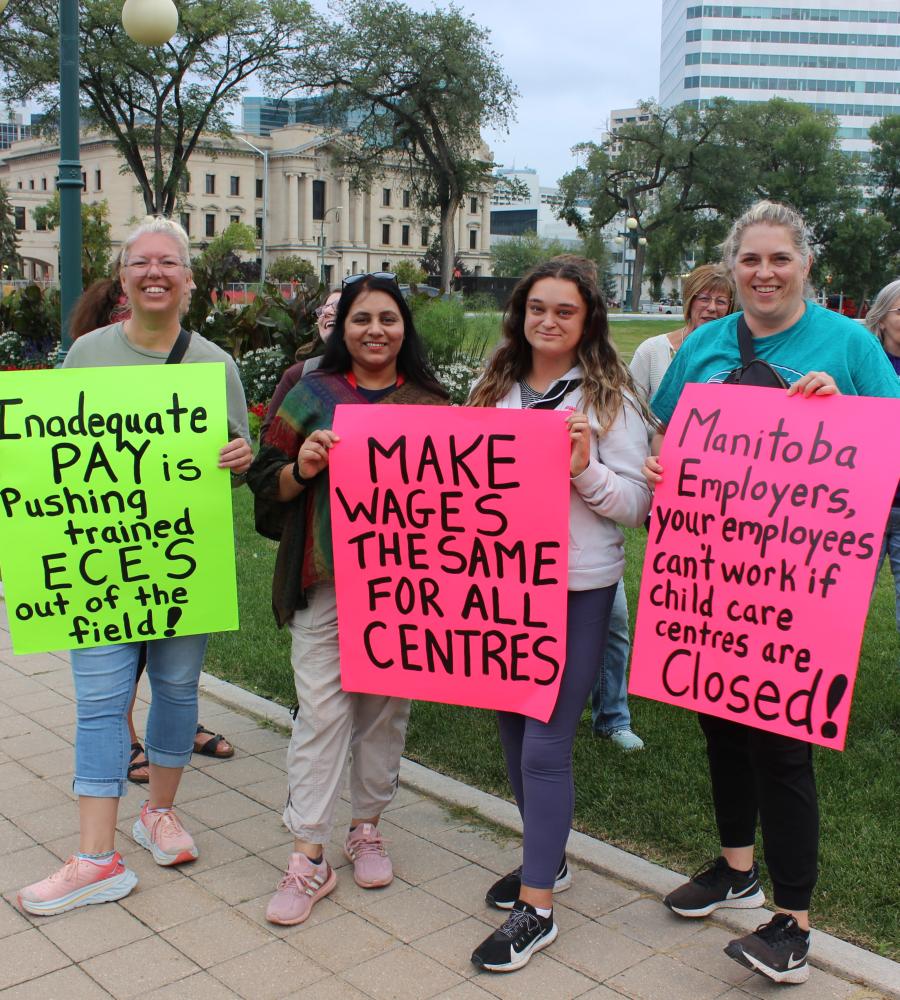 Inadequate
PAY is
Pushing
trained
ECE'S
out of the
field!
MAKE
WAGES
THE SAME
FOR ALL
CENTRES
Manitoba
Employers,
your employees
can't work if
child care
centres are
Closed!